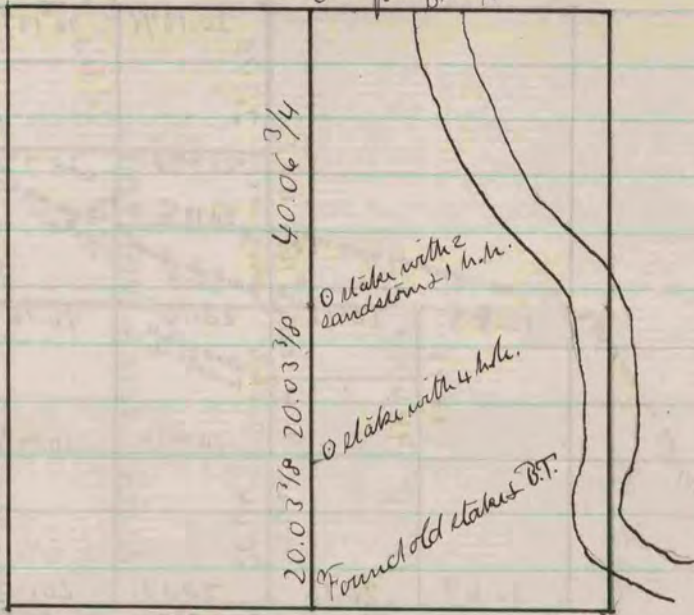 40.06 3/4
O stake with 2
sandstones & 1 h.h.
20.03 3/8
O stake with 4 h.h.
20.03 3/8
Found old stake & B.T.